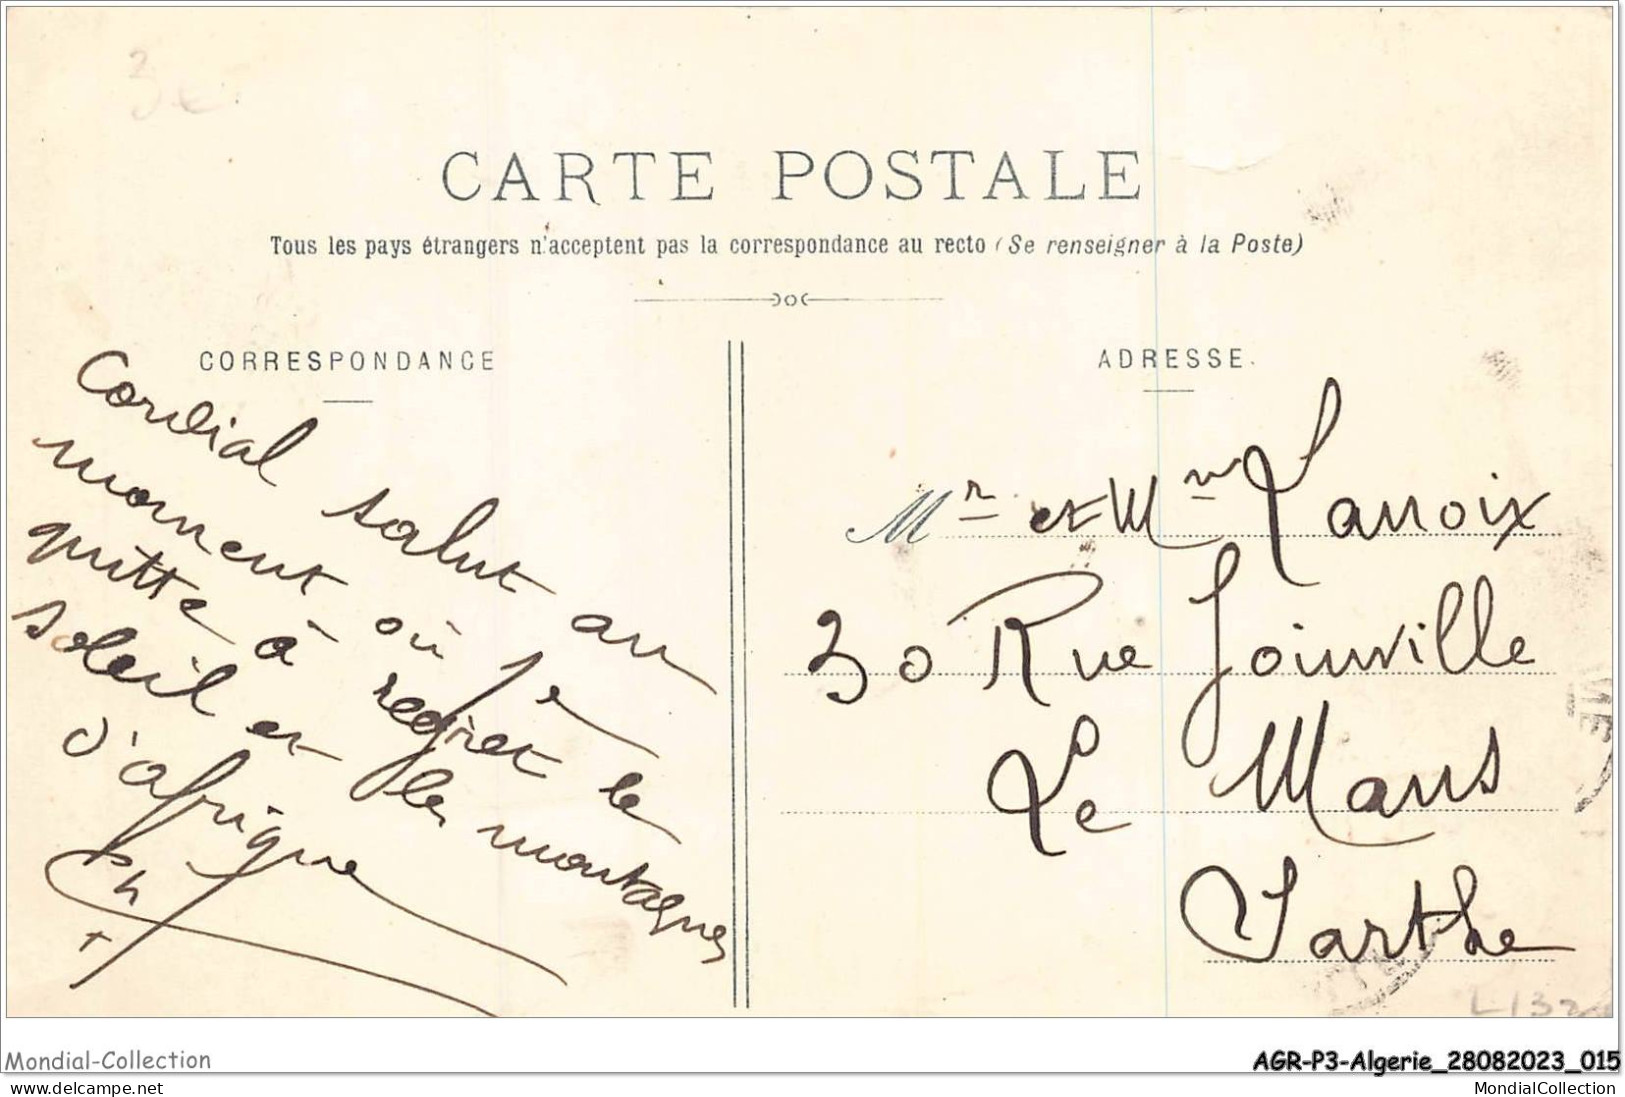 3€
CARTE POSTALE
Tous les pays étrangers n'acceptent pas la correspondance au recto (Se renseigner à la Poste)
CORRESPONDANCE
Cordial salut au
moment où je
quitte à regret le
soleil et les montagnes
d'afrique
ADRESSE.
Mr et Mme Lanoix
30 Rue Joinville
Le Mans
Sarthe
L132
Mondial-Collection
AGR-P3-Algerie_28082023_015
www.delcampe.net
MondialCollection